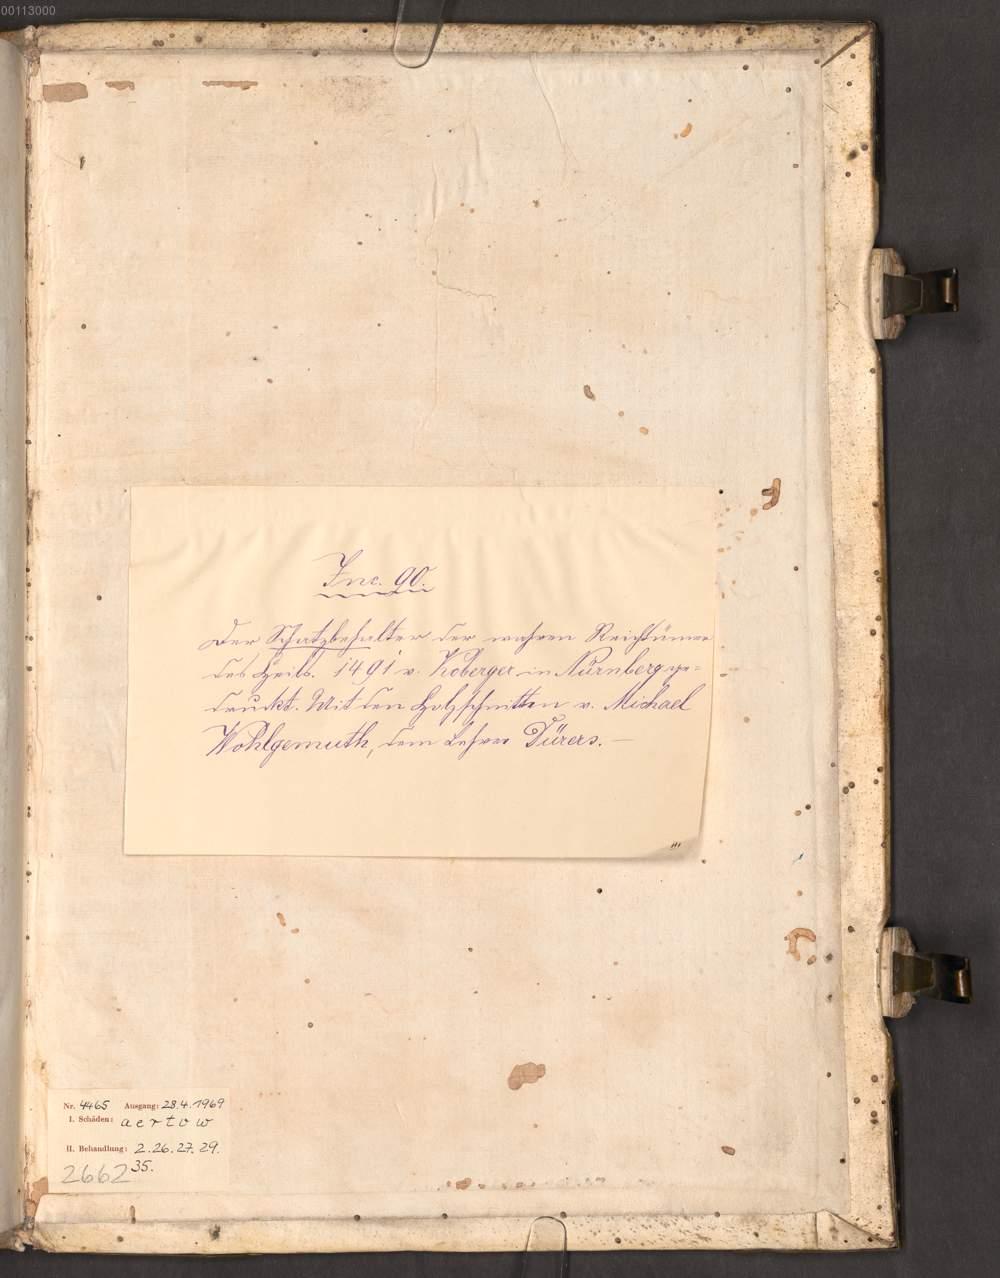 00113000
Inc. 90.
Der Schatzbehalter der wahren Reichtümer
des Heils. 1491 v. Koberger in Nürnberg ge-
druckt. Mit den Holzschnitten v. Michael
Wohlgemuth, dem Lehrer Dürers. —
Nr. 4465 Ausgang: 28.4.1969
I. Schäden: a e r t v w
II. Behandlung: 2.26.27.29.
35.
2662